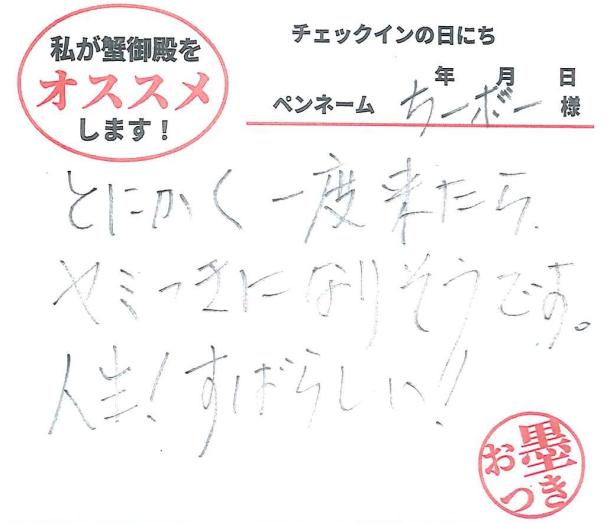 私が蟹御殿を
オススメ
します！
チェックインの日にち
年 月 日
ペンネーム ちーボー 様
とにかく一度来たら、
ヤミつきになりそうです。
人生！すばらしい！
お墨
つき